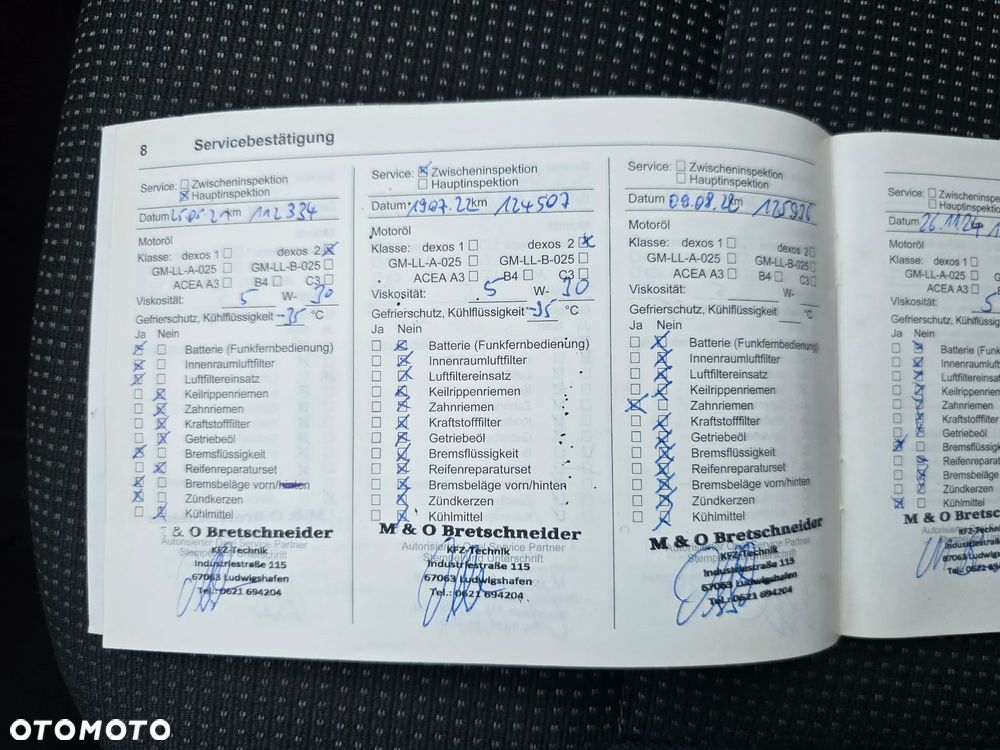 8 Servicebestätigung
Service: Zwischeninspektion
Hauptinspektion
Datum km 112334
Motoröl
Klasse: dexos 1 dexos 2
GM-LL-A-025 GM-LL-B-025
ACEA A3 B4 C3
Viskosität: 5 W- 30
Gefrierschutz, Kühlflüssigkeit -35 °C
Ja Nein
Batterie (Funkfernbedienung)
Innenraumluftfilter
Luftfiltereinsatz
Keilrippenriemen
Zahnriemen
Kraftstofffilter
Getriebeöl
Bremsflüssigkeit
Reifenreparaturset
Bremsbeläge vorn/hinten
Zündkerzen
Kühlmittel
M & O Bretschneider
Autorisierter Opel Service Partner
KFZ-Technik
Industriestraße 115
67063 Ludwigshafen
Tel.: 0621 694204
Service: Zwischeninspektion
Hauptinspektion
Datum: 19.07.22 km 124507
Motoröl
Klasse: dexos 1 dexos 2
GM-LL-A-025 GM-LL-B-025
ACEA A3 B4 C3
Viskosität: 5 W- 30
Gefrierschutz, Kühlflüssigkeit -35 °C
Ja Nein
Batterie (Funkfernbedienung)
Innenraumluftfilter
Luftfiltereinsatz
Keilrippenriemen
Zahnriemen
Kraftstofffilter
Getriebeöl
Bremsflüssigkeit
Reifenreparaturset
Bremsbeläge vorn/hinten
Zündkerzen
Kühlmittel
M & O Bretschneider
Autorisierter Service Partner
KFZ-Technik
Stempel und Unterschrift
Industriestraße 115
67063 Ludwigshafen
Tel.: 0621 694204
Service: Zwischeninspektion
Hauptinspektion
Datum 09.08.22 km
Motoröl
Klasse: dexos 1 dexos 2
GM-LL-A-025 GM-LL-B-025
ACEA A3 B4 C3
Viskosität: W-
Gefrierschutz, Kühlflüssigkeit °C
Ja Nein
Batterie (Funkfernbedienung)
Innenraumluftfilter
Luftfiltereinsatz
Keilrippenriemen
Zahnriemen
Kraftstofffilter
Getriebeöl
Bremsflüssigkeit
Reifenreparaturset
Bremsbeläge vorn/hinten
Zündkerzen
Kühlmittel
M & O Bretschneider
KFZ-Technik
Industriestraße 115
67063 Ludwigshafen
Tel.: 0621 694204
Service: Zwischeninspektion
Hauptinspektion
Datum 26.11.24
Motoröl
Klasse: dexos 1
GM-LL-A-025
ACEA A3
Viskosität: 5
Gefrierschutz, Kühlflüssig
Ja Nein
Batterie (Funkf
Innenraumluft
Luftfiltereinsatz
Keilrippenriem
Zahnriemen
Kraftstofffilter
Getriebeöl
Bremsflüssig
Reifenrepara
Bremsbeläge
Zündkerzen
Kühlmittel
M & O Brets
KFZ-Techn
Industriestraß
67063 Ludwigs
OTOMOTO